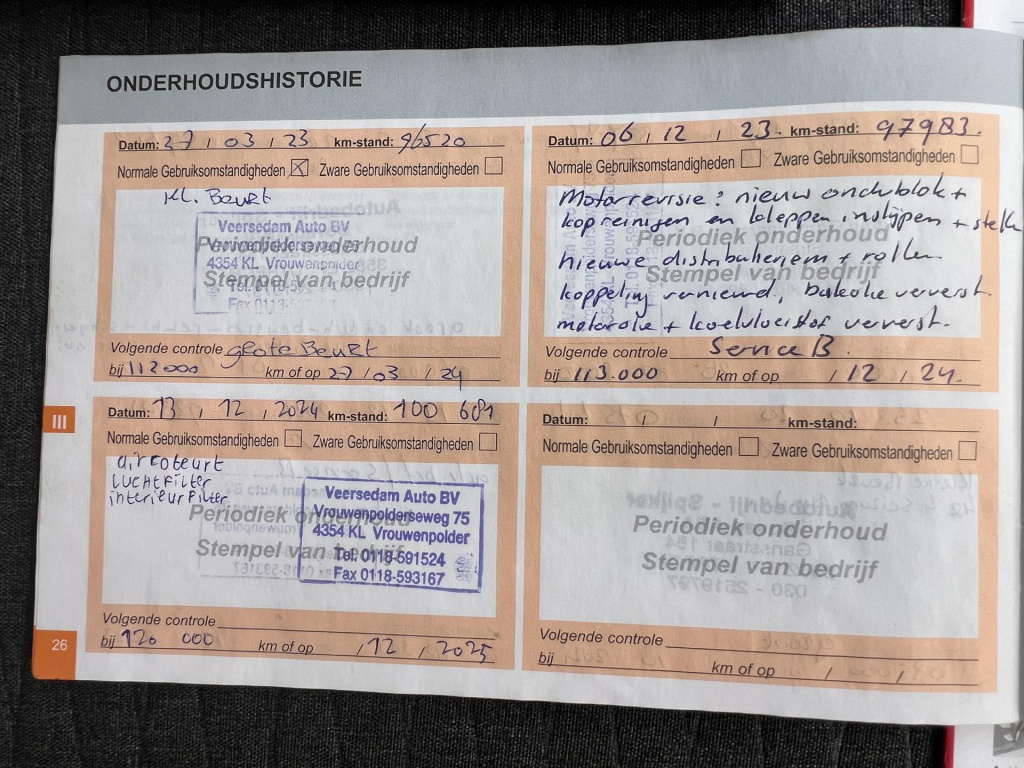 ONDERHOUDSHISTORIE
Datum: 27 / 03 / 23 km-stand: 96520
Normale Gebruiksomstandigheden ☒ Zware Gebruiksomstandigheden ☐
Kl. Beurt
Veersedam Auto BV
Vrouwenpolderseweg 75
Periodiek onderhoud
4354 KL Vrouwenpolder
Stempel van bedrijf
Fax 0118-593
Volgende controle grote Beurt
bij 112000 km of op 27 / 03 / 24
Datum: 06 / 12 / 23. km-stand: 97983.
Normale Gebruiksomstandigheden ☐ Zware Gebruiksomstandigheden ☐
Motorrevisie: nieuw onderblok +
kop reinigen en kleppen inslijpen + stell
Periodiek onderhoud
nieuwe distributieriem + rollen
Stempel van bedrijf
koppeling vernieuwd, bakolie ververst
motorolie + koelvloeistof ververst.
Volgende controle Service B.
bij 113.000 km of op / 12 / 24.
III
Datum: 13 / 12 / 2024 km-stand: 100 681
Normale Gebruiksomstandigheden ☐ Zware Gebruiksomstandigheden ☐
aircobeurt
LUCHTFilter
interieurFilter
Periodiek onderhoud
Stempel van bedrijf
Veersedam Auto BV
Vrouwenpolderseweg 75
4354 KL Vrouwenpolder
Tel. 0118-591524
Fax 0118-593167
Volgende controle
bij 120 000 km of op / 12 / 2025
Datum: / / km-stand:
Normale Gebruiksomstandigheden ☐ Zware Gebruiksomstandigheden ☐
Periodiek onderhoud
Stempel van bedrijf
Volgende controle
bij km of op / /
26